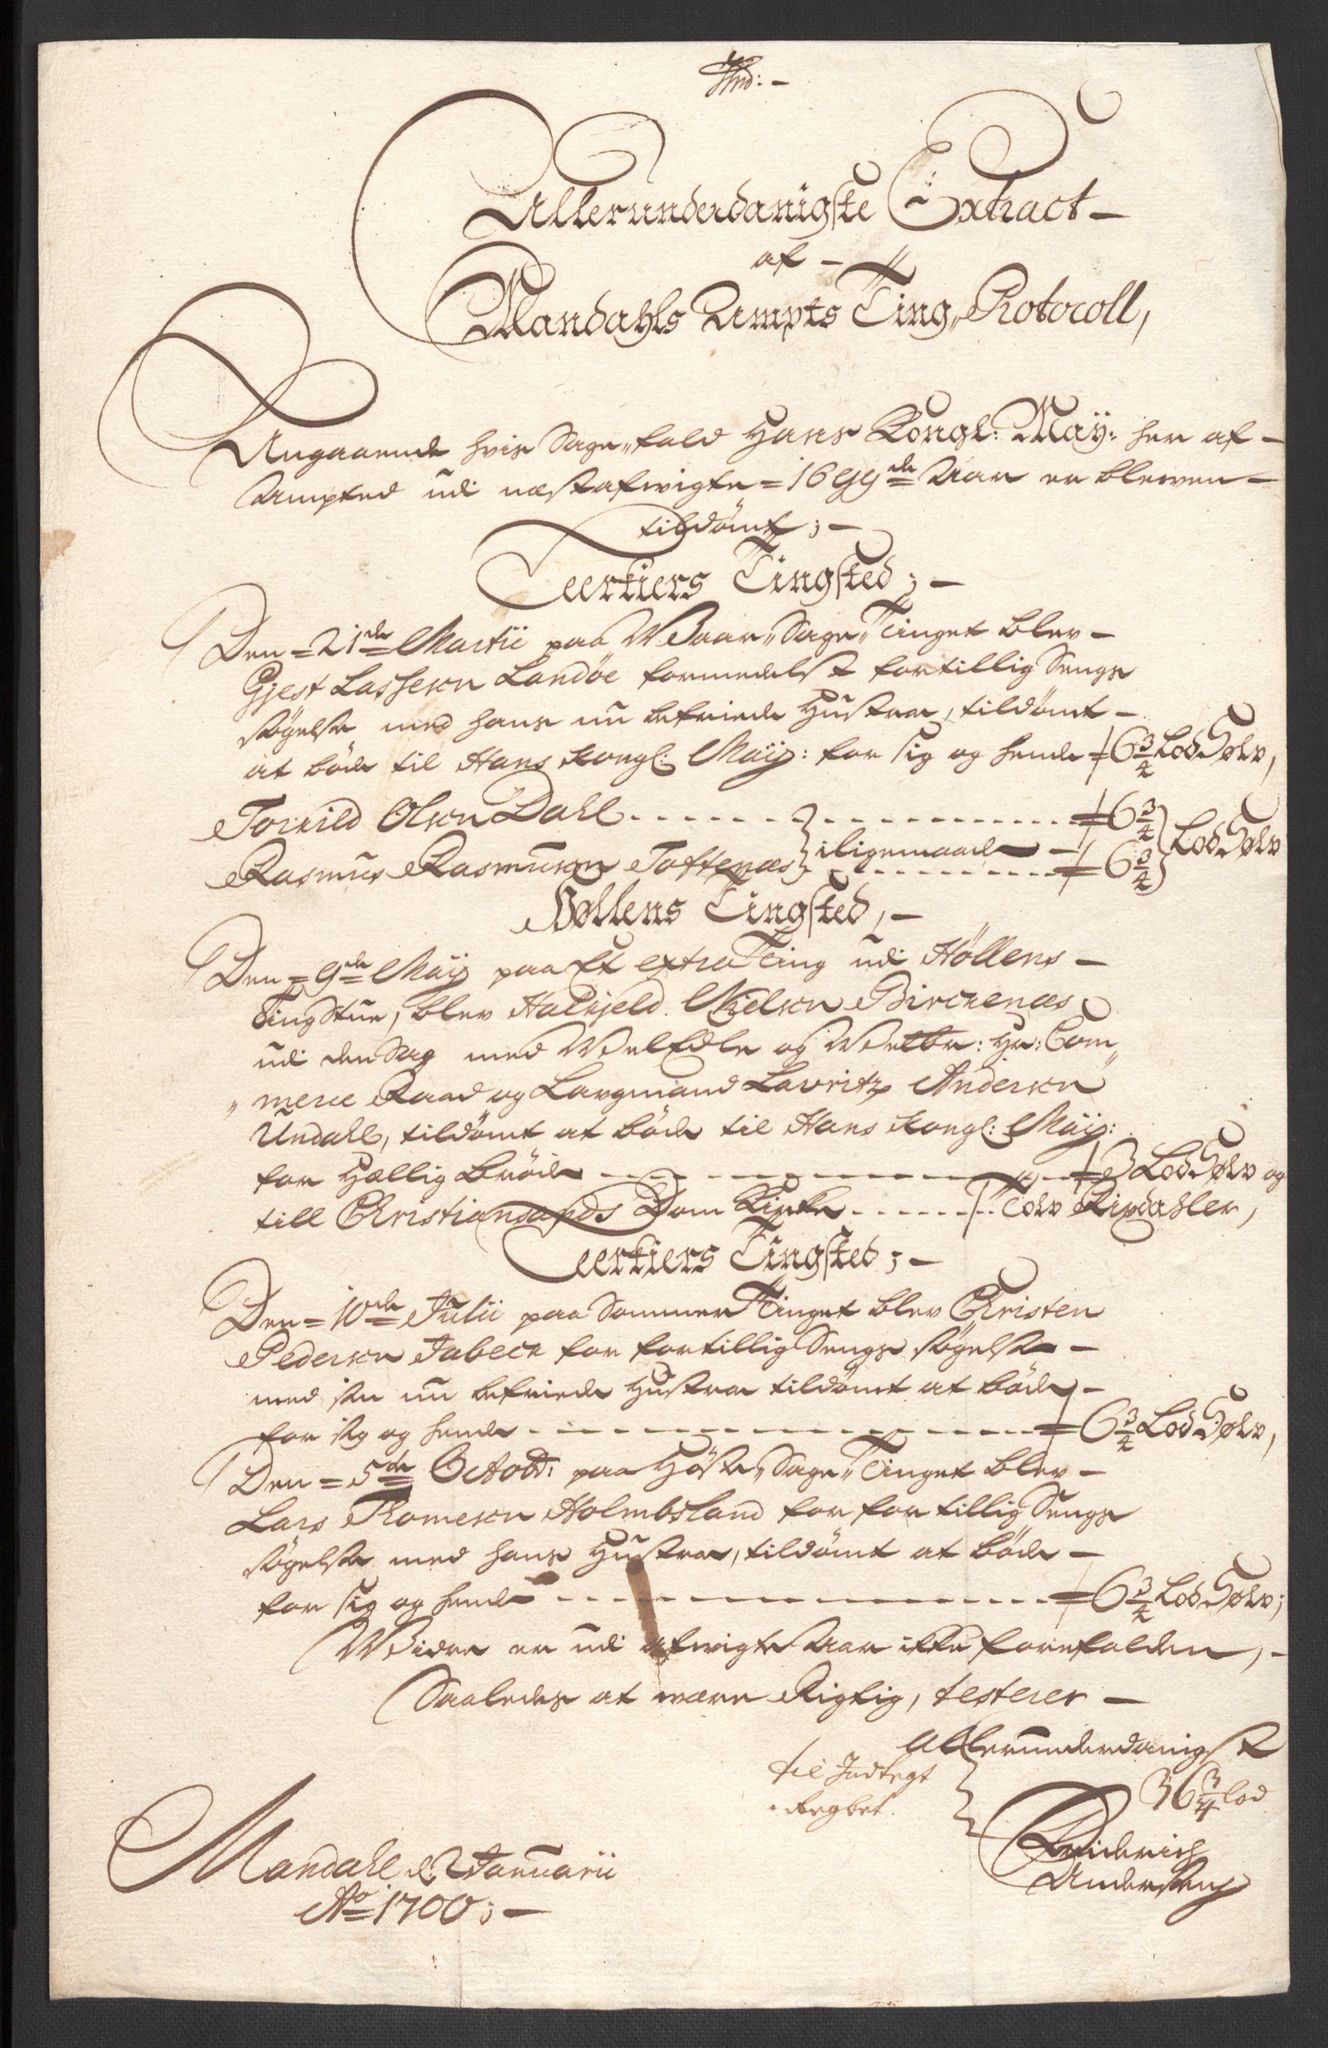 Allerunderdanigste Extract
af
Mandahls Ampts Ting Protocoll,
Angaaende hvis Sage fald Hans Kongl: Maÿ: her af
Ampted udi næstafwigte 1699de Aar er blewen
tildömt;
Eerkiers Tingsted;
Den 21de Martii paa Waar Sage Tinget blev
Gjest Lassesen Landøe formedelst fortillig Sengs
søgelse med hans nu befriede Hustroe, tildömt
at böde til Hans Kongl. Maÿ: for sig og hende 6 3/4 Lod Sølv,
Torkild Olsen Dahl 6 3/4
Rasmus Rasmusen Toftenæs iligemaade 6 3/4 Lod Sølv
Høllens Tingsted,
Den 9de Maÿ paa Et extra Ting udi Höllens
Tingstue, blev Halkjeld Nielsen Birckenæs
udi den Sag med WelEdle og Welbr: Hr: Com
merce Raad og Laugmand Lavritz Andersen
Undahl, tildömt at böde til Hans Kongl: Maÿ:
for Hællig bröde 3 Lod Sølv og
till Christiansands Dom Kirke Tolv Rixdahler,
Eerkiers Tingsted;
Den 10de Julii paa Sommer Tinget blev Christen
Pedersen Jabeck for fortillig Sengs søgelse
med sin nu befriede Hustroe tildömt at böde
for sig og hende 6 3/4 Lod Sølv,
Den 5de Octob: paa Höste Sage Tinget blev
Lars Tomesen Holmbsland for for tillig Sengs
søgelse med hans Hustroe, tildömt at böde
for sig og hende 6 3/4 Lod Sølv;
Widre er udi afwigte Aar ikke forefalden,
Saaledes at være Rigtig, testerer
allerunderdanigst
til Indtegt
36 3/4 lod
Regbet.
Friderich
Andersen
Mandahl d. 2 Januarii
Ao 1700;